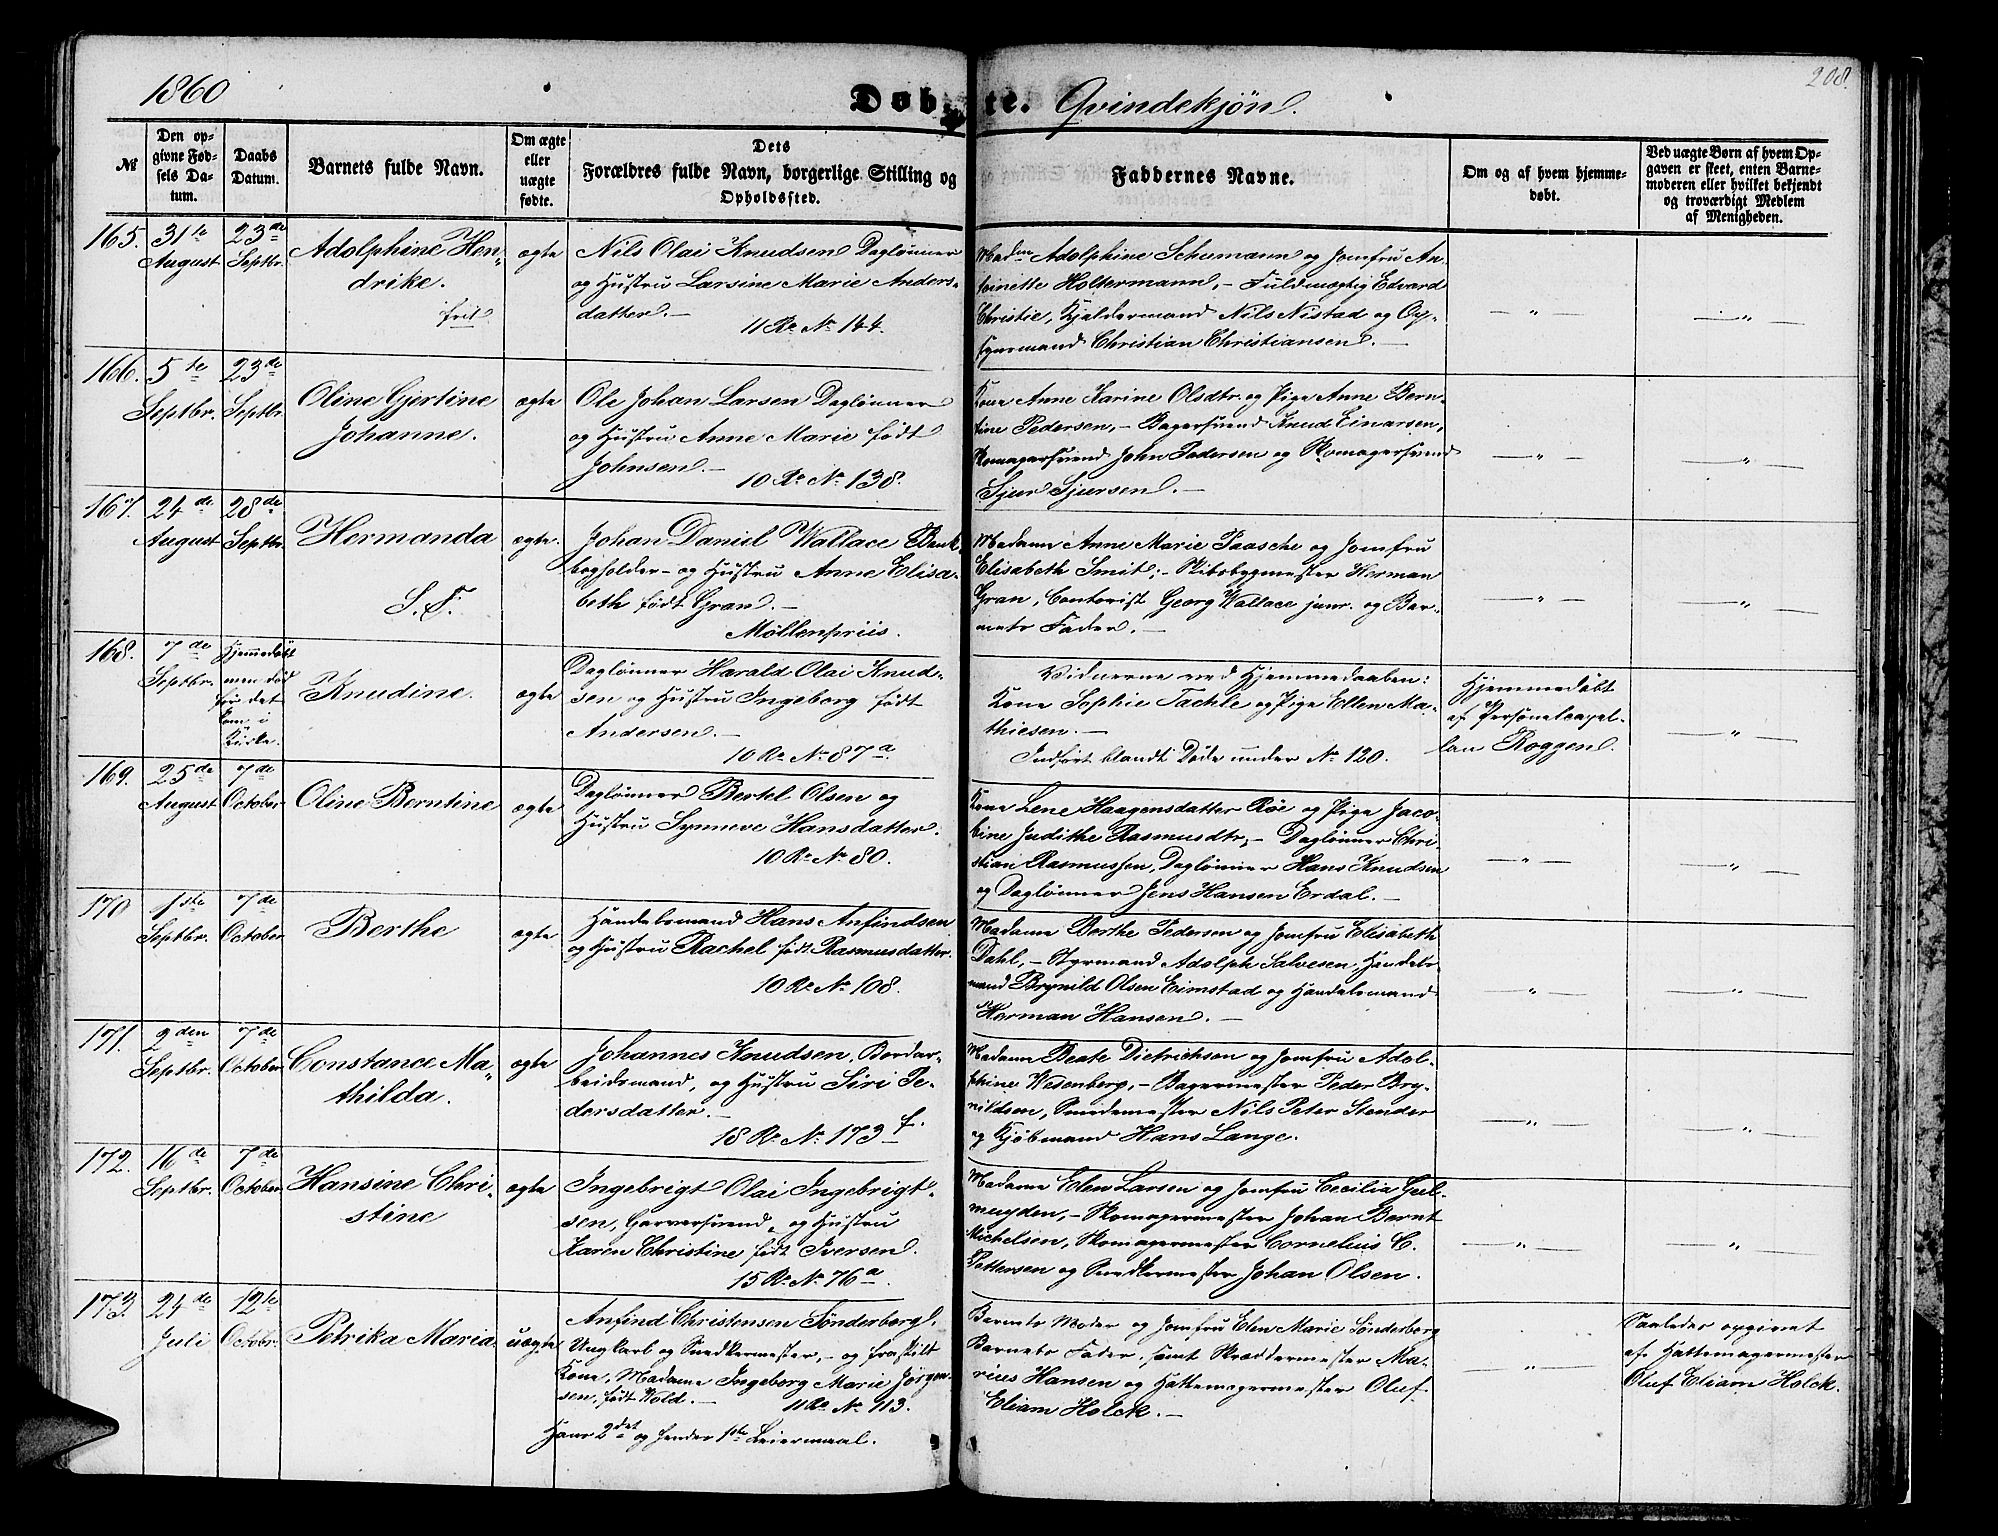 1860 Døbte. Qvindekjøn. 208.
№ Den opgivne Fødsels Datum. Daabs Datum. Barnets fulde Navn. Om ægte eller uægte fødte. Dets Forældres fulde Navn, borgerlige Stilling og Opholdssted. Faddernes Navne. Om og af hvem hjemmedøbt. Ved uægte Børn af hvem Opgaven er skeet, enten Barnemoderen eller hvilket bekjendt og troværdigt Medlem af Menigheden.
165. 31te August 23de Septbr. Adolphine Hendrike. frit. ægte
Nils Olai Knudsen Daglønner
og Hustru Larsine Marie Anders-
datter.—
11 R. No 144.
Madm Adolphine Schumann og Jomfru An-
toinette Holtermann,— Fuldmægtig Edvard
Christie, Kjeldermand Nils Nistad og Op-
synsmand Christian Christiansen.—
— " — — " —
166. 5te Septbr. 23de Septbr. Oline Gjertine Johanne. ægte
Ole Johan Larsen Daglønner
og Hustru Anne Marie født
Johnsen.—
10 R. No 138.
Kone Anne Karine Olsdtr. og Pige Anne Bern-
tine Pedersen,— Bagersvend Knud Einarsen,
Skomagersvend John Pedersen og Skomagersvend
Sjur Sjursen.—
— " — — " —
167. 24de August 28de Septbr. Hermanda S. F. ægte.
Johan Daniel Wallace Bank-
bogholder— og Hustru Anne Elisa-
beth født Gran.—
Møllenpriis.
Madame Anne Marie Paasche og Jomfru
Elisabeth Smit;— Skibsbygmester Herman
Gran, Contorist Georg Wallace junr. og Bar-
nets Fader.—
— " — — " —
168. 7de Septbr. Hjemmedøbt men død før det kom i Kirke. Knudine. ægte
Daglønner Harald Olai Knud-
sen og Hustru Ingeborg født
Andersen.—
10 R. No 87a.
Vidnerne ved Hjemmedaaben:
Kone Sophie Tachle og Pige Ellen Ma-
thiesen.—
Indført blandt Døde under No 120.
Hjemmedøbt
af Personelcapel-
lan Roggen.
— " —
169. 25de August 7de October Oline Berntine ægte
Daglønner Bertel Olsen og
Hustru Synneve Hansdatter.
10 R. No 80.
Kone Lene Haagensdatter Røe og Pige Jaco-
bine Judithe Rasmusdtr,— Daglønner Chri-
stian Rasmussen, Daglønner Hans Knudsen
og Daglønner Jens Hansen Erdal.—
— " — — " —
170 1ste Septbr. 7de October. Berthe ægte
Handelsmand Hans Anfindsen
og Hustru Rachel født Rasmusdatter.
10 R. No 108.
Madame Berthe Pedersen og Jomfru Elisabeth
Dahl,— Styrmand Adolph Salvesen, Handels-
mand Brynild Olsen Eimstad og Handelsmand
Herman Hansen.—
— " — — " —
171. 2den Septbr. 7de October Constance Mathilda. ægte
Johannes Knudsen, Bordar-
beidsmand, og Hustru Siri Pe-
dersdatter.—
18 R. No 173 f.
Madame Beate Dietrichson og Jomfru Adol-
phine Wesenberg,— Bagermester Peder Bry-
nildsen, Smedemester Nils Peter Stender
og Kjøbmand Hans Lange.
— " — — " —
172. 16de Septbr. 7de October. Hansine Christine ægte
Ingebrigt Olai Ingebrigt-
sen, Garversvend, og Hustru
Karen Christine født Iversen.
15 R. No 76a
Madame Elen Larsen og Jomfru Cecilia Gul-
meyden,— Skomagermester Johan Bernt
Michelsen, Skomagermester Cornelius C.
Pettersen og Snedkermester Johan Olsen.
— " — — " —
173. 24de Juli 12te Octobr. Petrika Maria. uægte
Anfind Christensen Sønderborg,
Ungkarl og Snedkermester,— og fraskilt
Kone, Madame Ingeborg Marie Jørgen-
sen, født Wold.— 11 R. No 113.
Hans 2det og hendes 1ste Leiermaal.
Barnets Moder og Jomfru Elen Marie Sønderborg
Barnets Fader, samt Skræddermester Ma-
rius Hansen og Hattemagermester Oluf
Eliam Holck.—
— " —
Saaledes opgivet
af Hattemagermester
Oluf Eliam Holck.